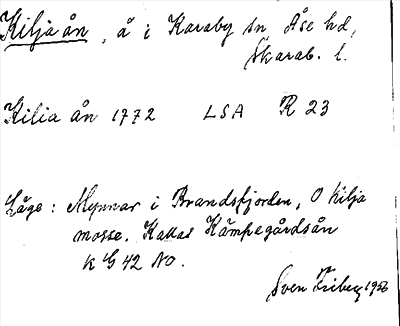 Kilja ån, å i Karaby sn, Åse hd,
Skarab. l.
Kilia ån 1772 LSA R 23
Läge: Mynnar i Brandsfjorden, O Kilja
mosse. Kallas Kämpegårdsån
k G 42 NO.
Sven Friberg 1956